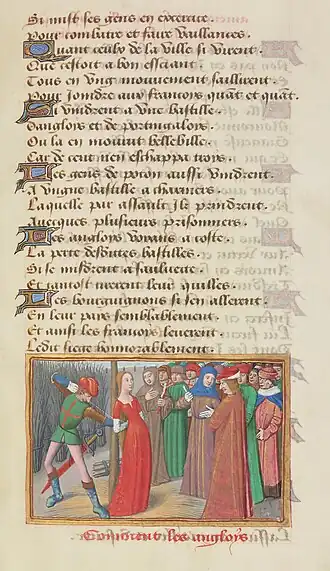 Si mist ses gens en excercite.
Pour combatre et faire vaillances.
Quant ceulx de la ville si virent.
Que cestoit a bon essciant.
Tous en vng mouuement saillirent.
Pour Joindre aux francois quāt et quāt.
Si vindrent a vne bastille.
Danglois et de portugalois.
Ou la en mourut
Car de cent nen eschappa trois.
Les gens de poton aussi vindrent.
A vngne bastille a charniers.
Laquelle par assault ilz prindrent.
Auecques plusieurs prisonniers.
Les anglois voyans a coste.
La perte desdites bastilles.
Si se misdrent a sauluete.
Et tantost leuerent leurs quilles.
Les bourguignons si sen allerent.
En leur pays semblablement.
Et ainsi les francoys leuerent.
Ledit siege honnorablement.
Comment les anglois